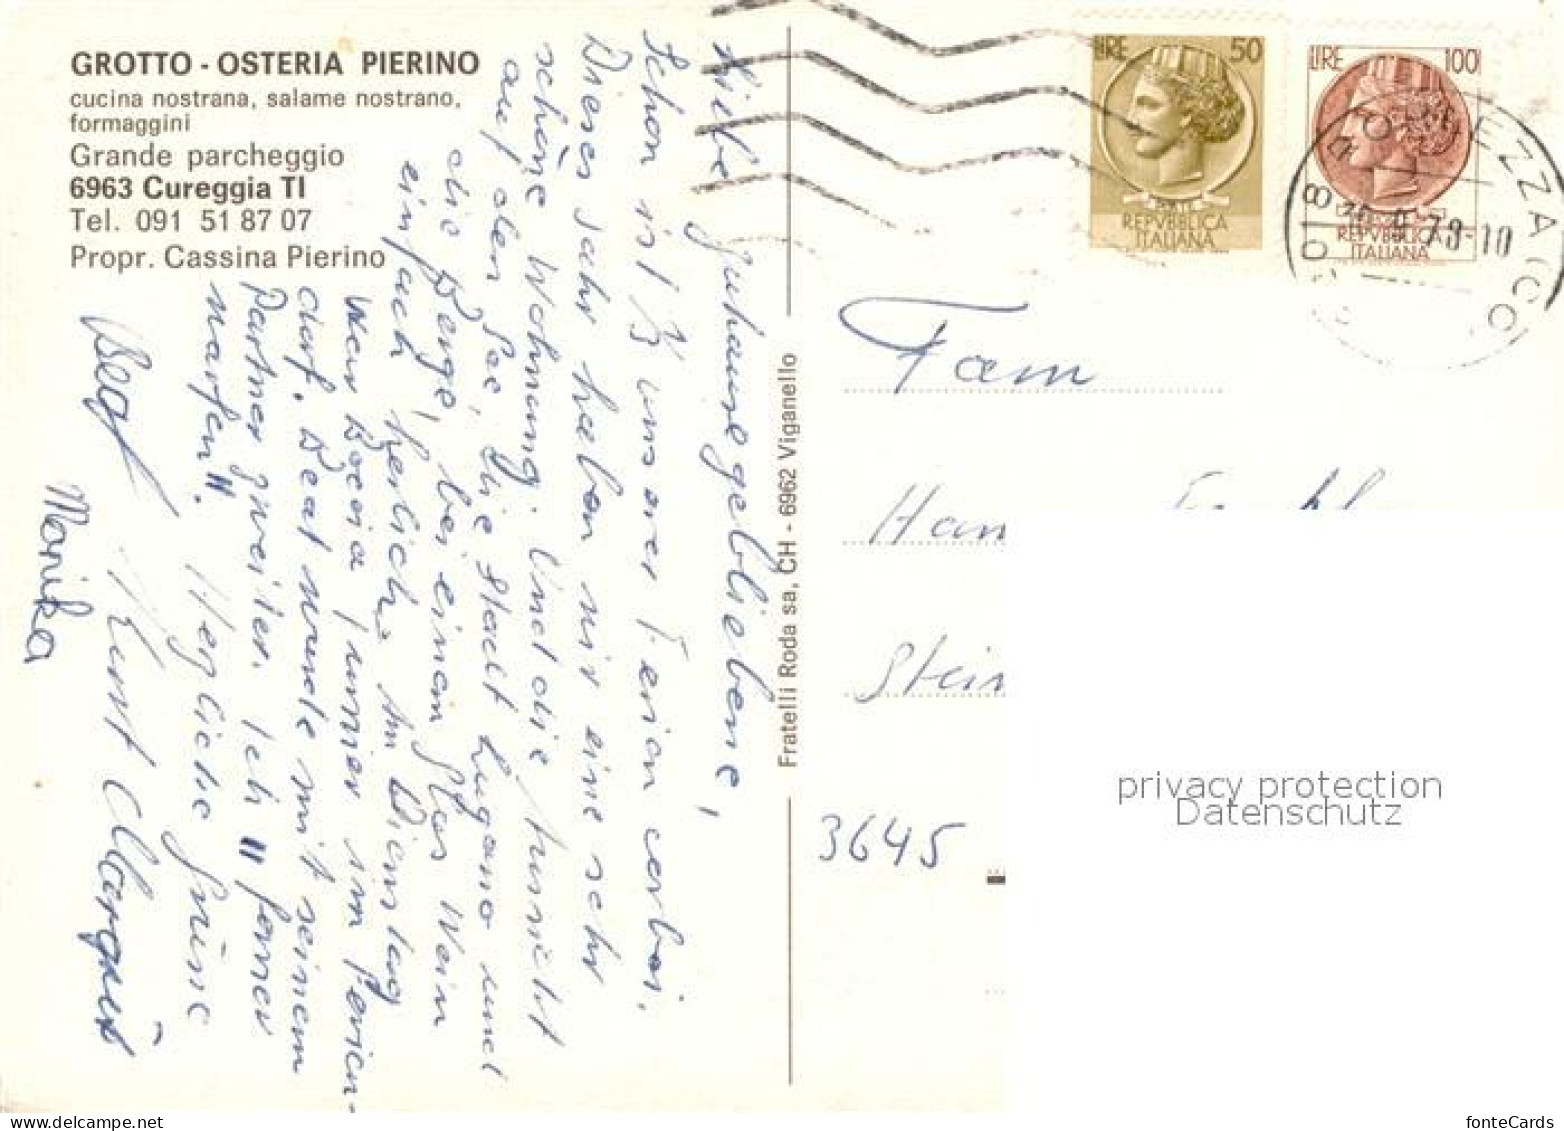 GROTTO - OSTERIA PIERINO
cucina nostrana, salame nostrano,
formaggini
Grande parcheggio
6963 Cureggia TI
Tel. 091 51 87 07
Propr. Cassina Pierino
Liebe Zuhausegebliebene,
Schon ist 1/3 unserer Ferien vorbei.
Dieses Jahr haben wir eine sehr
schöne Wohnung. Und die Aussicht
auf den See, die Stadt Lugano und
die Berge, bei einem Glas Wein
einfach herlich. Am Dienstag
war Boccia Turnier im Ferien-
dorf. Beat wurde mit seinem
Partner zweiter. Ich "
warfen".
Herzliche Grüsse
Beat
Kurt Margrit
Monika
Fratelli Roda sa, CH - 6962 Viganello
LIRE 50
REPVBBLICA
ITALIANA
LIRE 100
REPVBBLICA
ITALIANA
Fam
Han
Stein
3645
privacy protection
Datenschutz
fonteCards